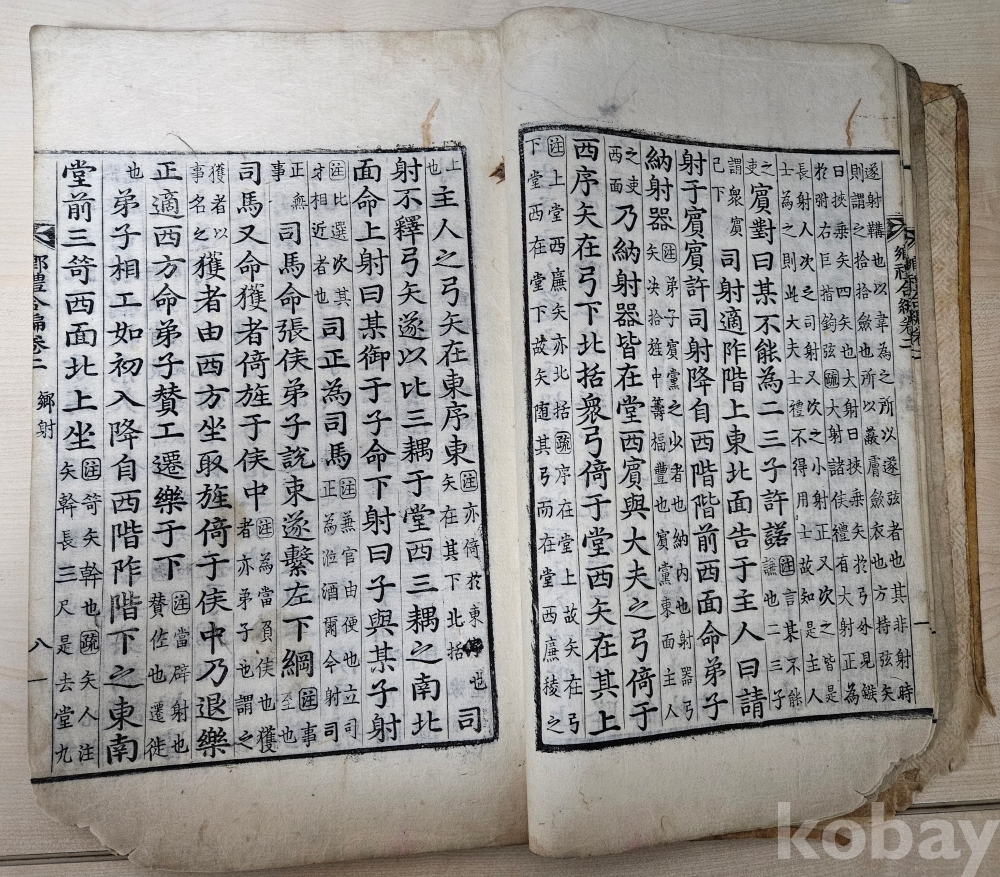 鄕禮合編卷二
遂射韝也以韋為之所以遂弦者也其非射時
則謂之拾拾斂也所以蔽膚斂衣也方持弦矢
曰挾乘矢四矢也大射曰挾乘矢於弓外見鏃
於弣右巨指鉤弦疏大射諸侯禮有大射正為
長射人次之司射又次之小射正又次之皆是
士為之則此大夫士禮不得用士故知是主人
之吏賓對曰某不能為二三子許諾注言某不能謙也二三子
謂衆賓已下司射適阼階上東北面告于主人曰請
射于賓賓許司射降自西階階前西面命弟子
納射器注弟子賓黨之少者也納內也射器弓矢決拾旌中籌楅豐也賓黨東面主人
之吏西面乃納射器皆在堂西賓與大夫之弓倚于
西序矢在弓下北括衆弓倚于堂西矢在其上
注上堂西廉矢亦北括疏序在堂上故矢在弓
下堂西在堂下故矢随其弓而在堂西廉稜之
上也主人之弓矢在東序東注亦倚於東序也矢在其下北括司
射不釋弓矢遂以比三耦于堂西三耦之南北
面命上射曰某御于子命下射曰子與某子射
注比選次其才相近者也司正為司馬注兼官由便也立司正為涖酒爾今射司
正無事司馬命張侯弟子說束遂繫左下綱注事至也
司馬又命獲者倚旌于侯中注為當負侯也獲者亦弟子也謂之
獲者以事名之獲者由西方坐取旌倚于侯中乃退樂
正適西方命弟子贊工遷樂于下注當辟射也贊佐也遷徙
也弟子相工如初入降自西階阼階下之東南
堂前三笴西面北上坐注笴矢幹也疏矢人注矢幹長三尺是去堂九
鄕禮合編卷二 鄕射 八
kobay